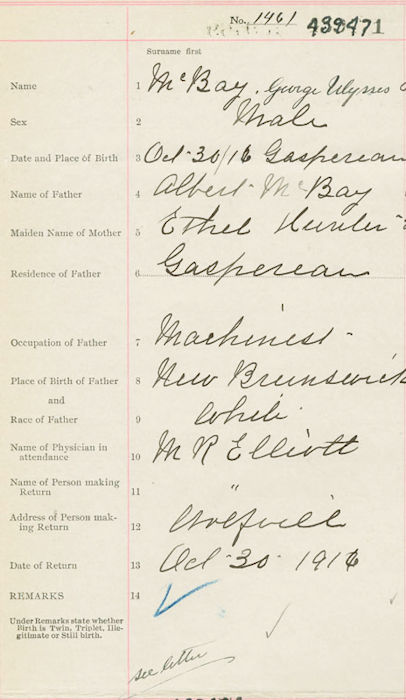 No. 1461 439471
Surname first
Name 1 McBay, George Ulysses
Sex 2 Male
Date and Place of Birth 3 Oct 30/16 Gaspereau
Name of Father 4 Albert McBay
Maiden Name of Mother 5 Ethel
Residence of Father 6 Gaspereau
Occupation of Father 7 Machinist
Place of Birth of Father 8 New Brunswick
and
Race of Father 9 White
Name of Physician in
attendance 10 M R Elliott
Name of Person making
Return 11 "
Address of Person mak-
ing Return 12 Wolfville
Date of Return 13 Oct 30 1916
REMARKS 14
Under Remarks state whether
Birth is Twin, Triplet, Ille-
gitimate or Still birth.
see letter